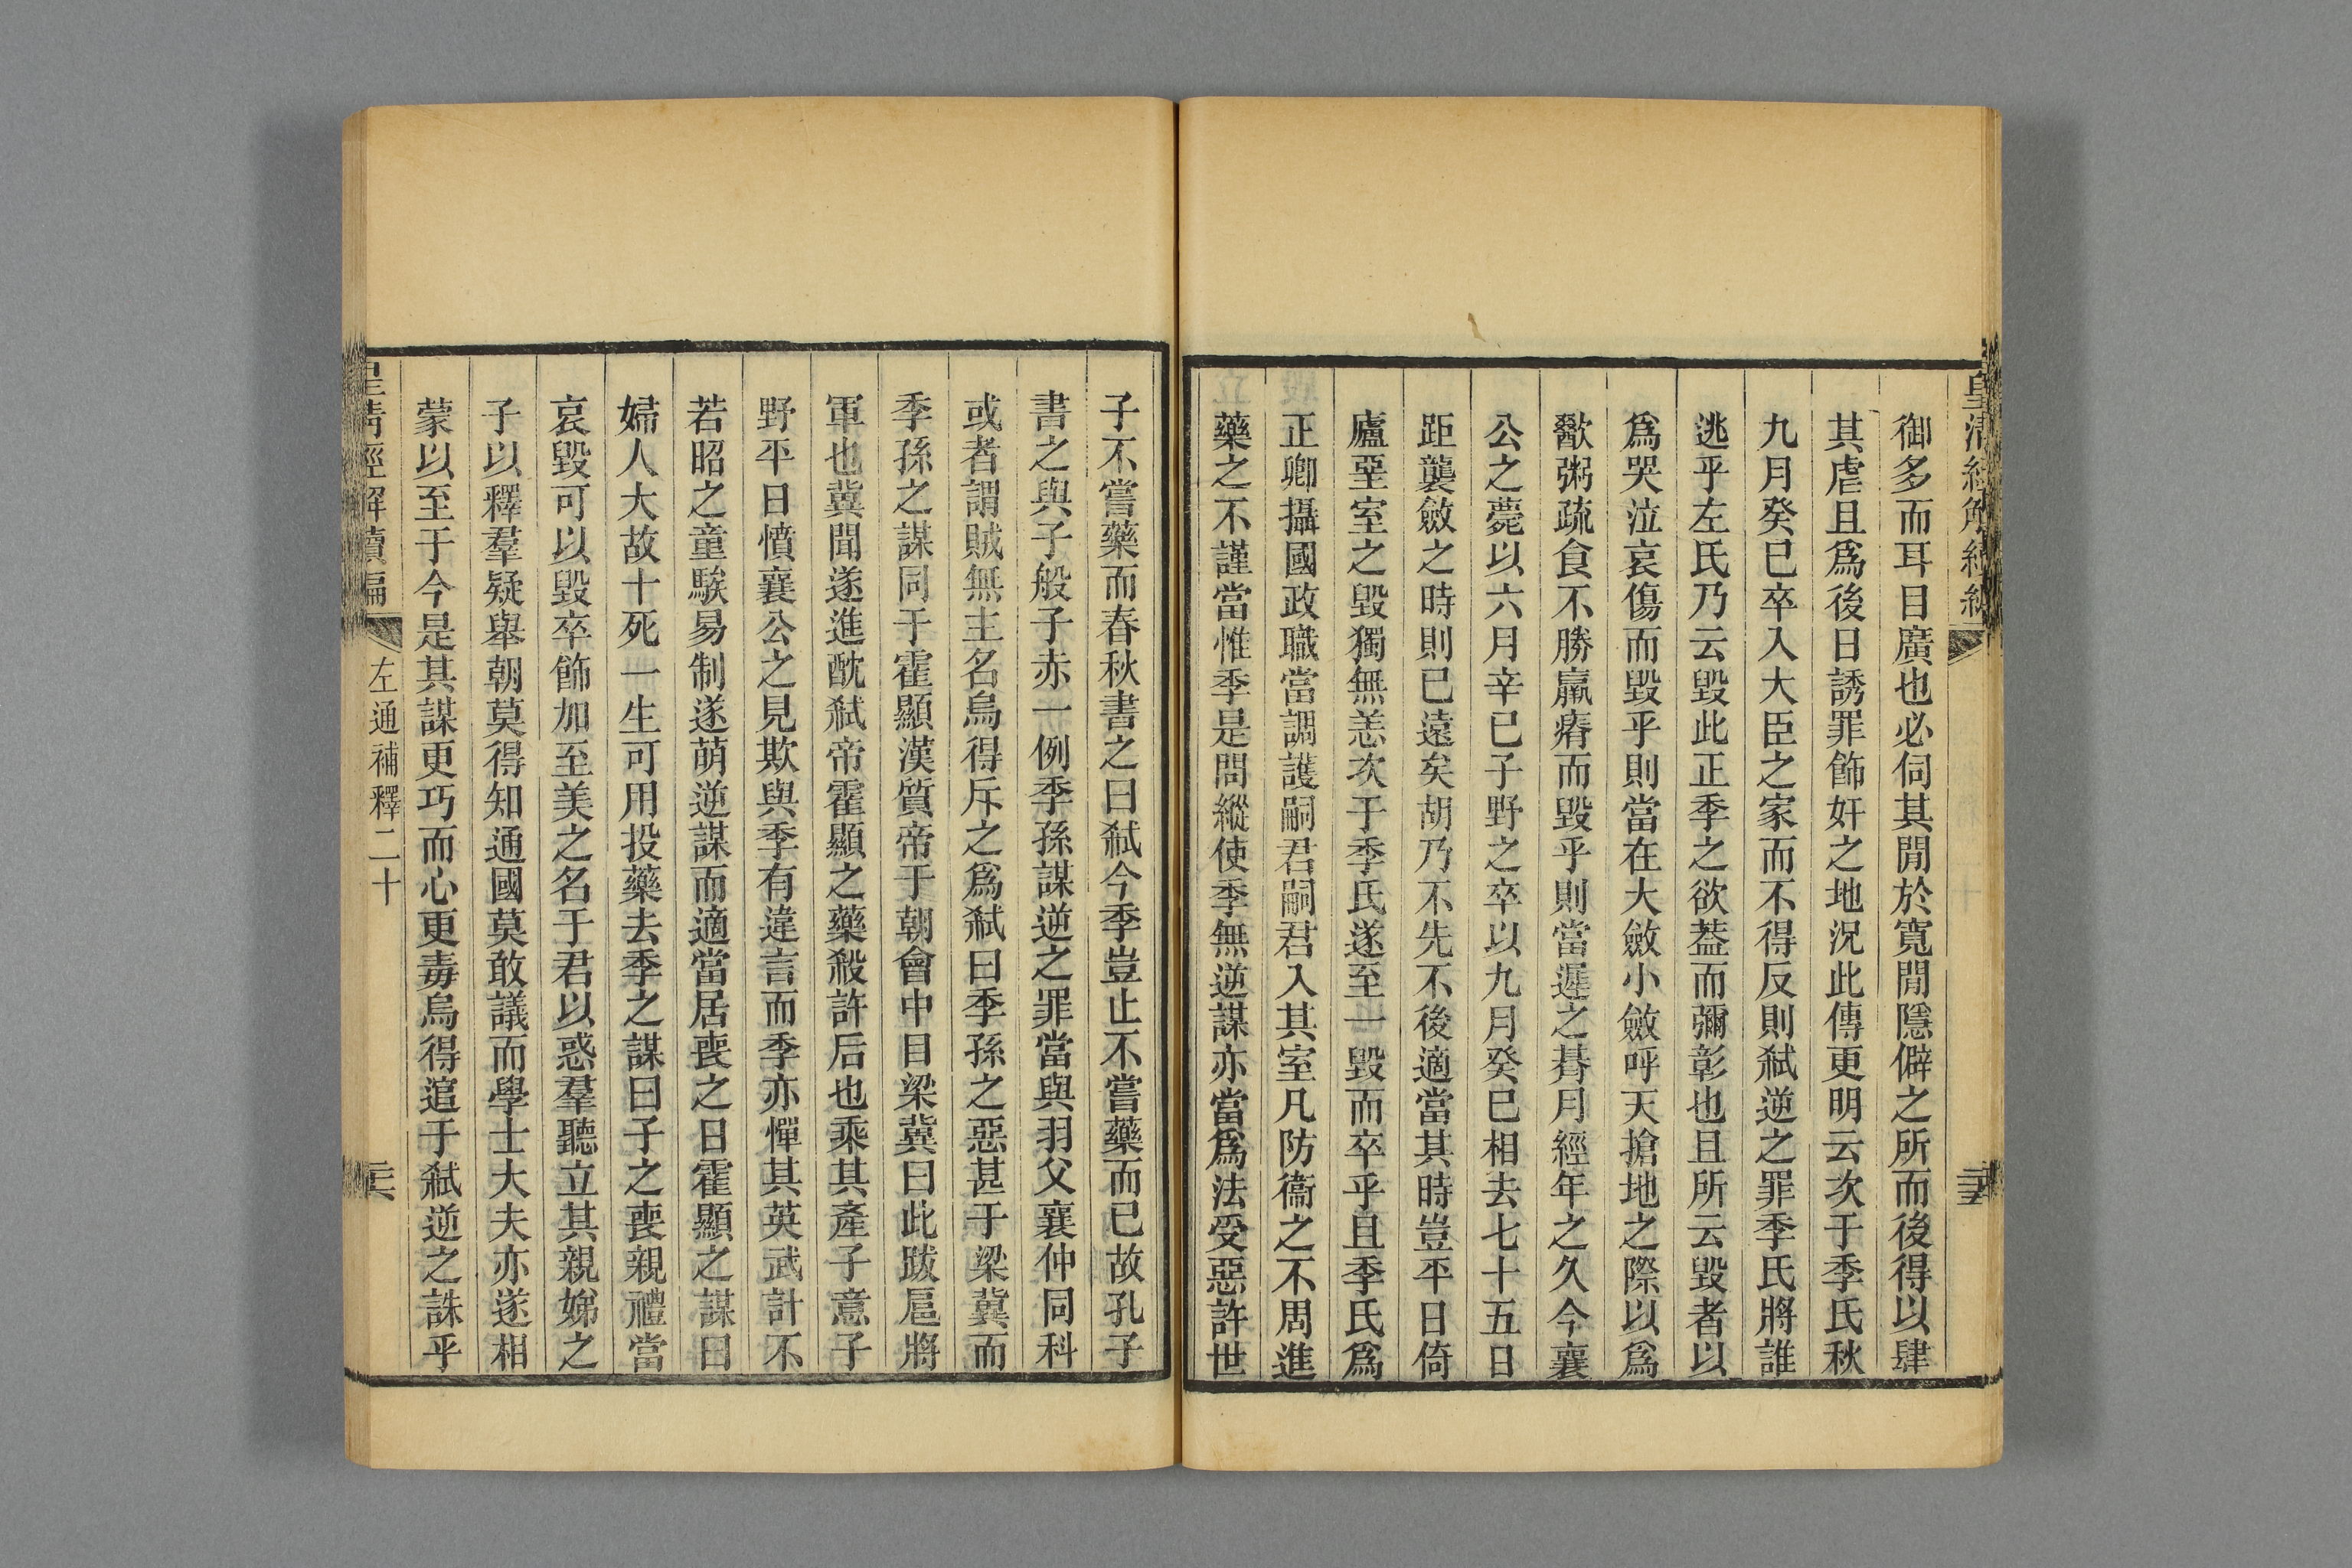 皇清經解續編
二十五
御多而耳目廣也必伺其閒於寬閒隱僻之所而後得以肆
其虐且爲後日誘罪飾奸之地況此傳更明云次于季氏秋
九月癸巳卒入大臣之家而不得反則弑逆之罪季氏將誰
逃乎左氏乃云毀此正季之欲葢而彌彰也且所云毀者以
爲哭泣哀傷而毀乎則當在大斂小斂呼天搶地之際以爲
歠粥疏食不勝羸瘠而毀乎則當遲之朞月經年之久今襄
公之薨以六月辛巳子野之卒以九月癸巳相去七十五日
距襲斂之時則已遠矣胡乃不先不後適當其時豈平日倚
廬堊室之毀獨無恙次于季氏遂至一毀而卒乎且季氏爲
正卿攝國政職當調護嗣君嗣君入其室凡防衞之不周進
藥之不謹當惟季是問縱使季無逆謀亦當爲法受惡許世
子不嘗藥而春秋書之曰弑今季豈止不嘗藥而已故孔子
書之與子般子赤一例季孫謀逆之罪當與羽父襄仲同科
或者謂賊無主名烏得斥之爲弑曰季孫之惡甚于梁冀而
季孫之謀同于霍顯漢質帝于朝會中目梁冀曰此跋扈將
軍也冀聞遂進酖弑帝霍顯之藥殺許后也乘其產子意子
野平日憤襄公之見欺與季有違言而季亦憚其英武計不
若昭之童騃易制遂萌逆謀而適當居喪之日霍顯之謀曰
婦人大故十死一生可用投藥去季之謀曰子之喪親禮當
哀毀可以毀卒飾加至美之名于君以惑羣聽立其親娣之
子以釋羣疑舉朝莫得知通國莫敢議而學士大夫亦遂相
蒙以至于今是其謀更巧而心更毒烏得逭于弑逆之誅乎
皇清經解續編
左通補釋二十
二十六